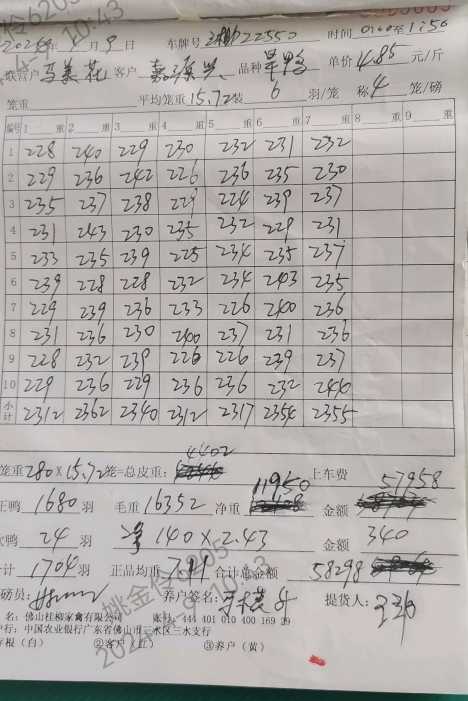 车牌号 22550 时间 0100至1:50
客户 品种 单价 4.85 元/斤
笼重 平均笼重 15.72 装 6 羽/笼 称 4 笼/磅
编号 1 重 2 重 3 重 4 重 5 重 6 重 7 重 8 重 9 重
1 228 240 229 230 232 231 232
2 229 236 242 226 236 235 230
3 235 237 238 229 224 239 237
4 231 243 230 235 232 229 231
5 233 235 239 225 234 235 237
6 239 228 228 232 234 243 235
7 229 239 236 233 226 240 236
8 231 236 230 240 237 231 236
9 228 232 239 226 226 239 237
10 229 236 229 236 236 232 244
小计 2312 2362 2340 2312 2317 2354 2355
4402
笼重 280×15.72 笼=总皮重:
上车费
正鸭 1680 羽 毛重 16352 净重 11950 金额 57958
鸭 24 羽 140×2.43 金额 340
计 1704 羽 正品均重 7.11 合计总金额 58298
磅员: 养户签名: 提货人:
名: 佛山桂柳家禽有限公司 账号: 444 401 010 400 169 29
行: 中国农业银行广东省佛山市三水区三水支行
存根(白) ②客户(红) ③养户(黄)
姚金伶6205